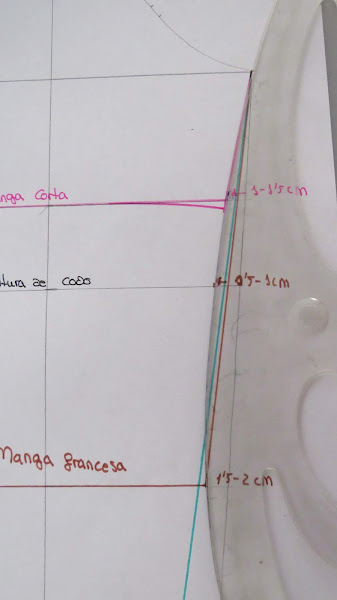 nga corta
1-1'5cm
tura de codo
0'5-1cm
Manga francesa
1'5-2 cm